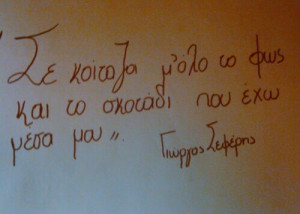 " Σε κοίταζα μ' όλο το φως
και το σκοτάδι που έχω
μέσα μου ".
Γιώργος Σεφέρης